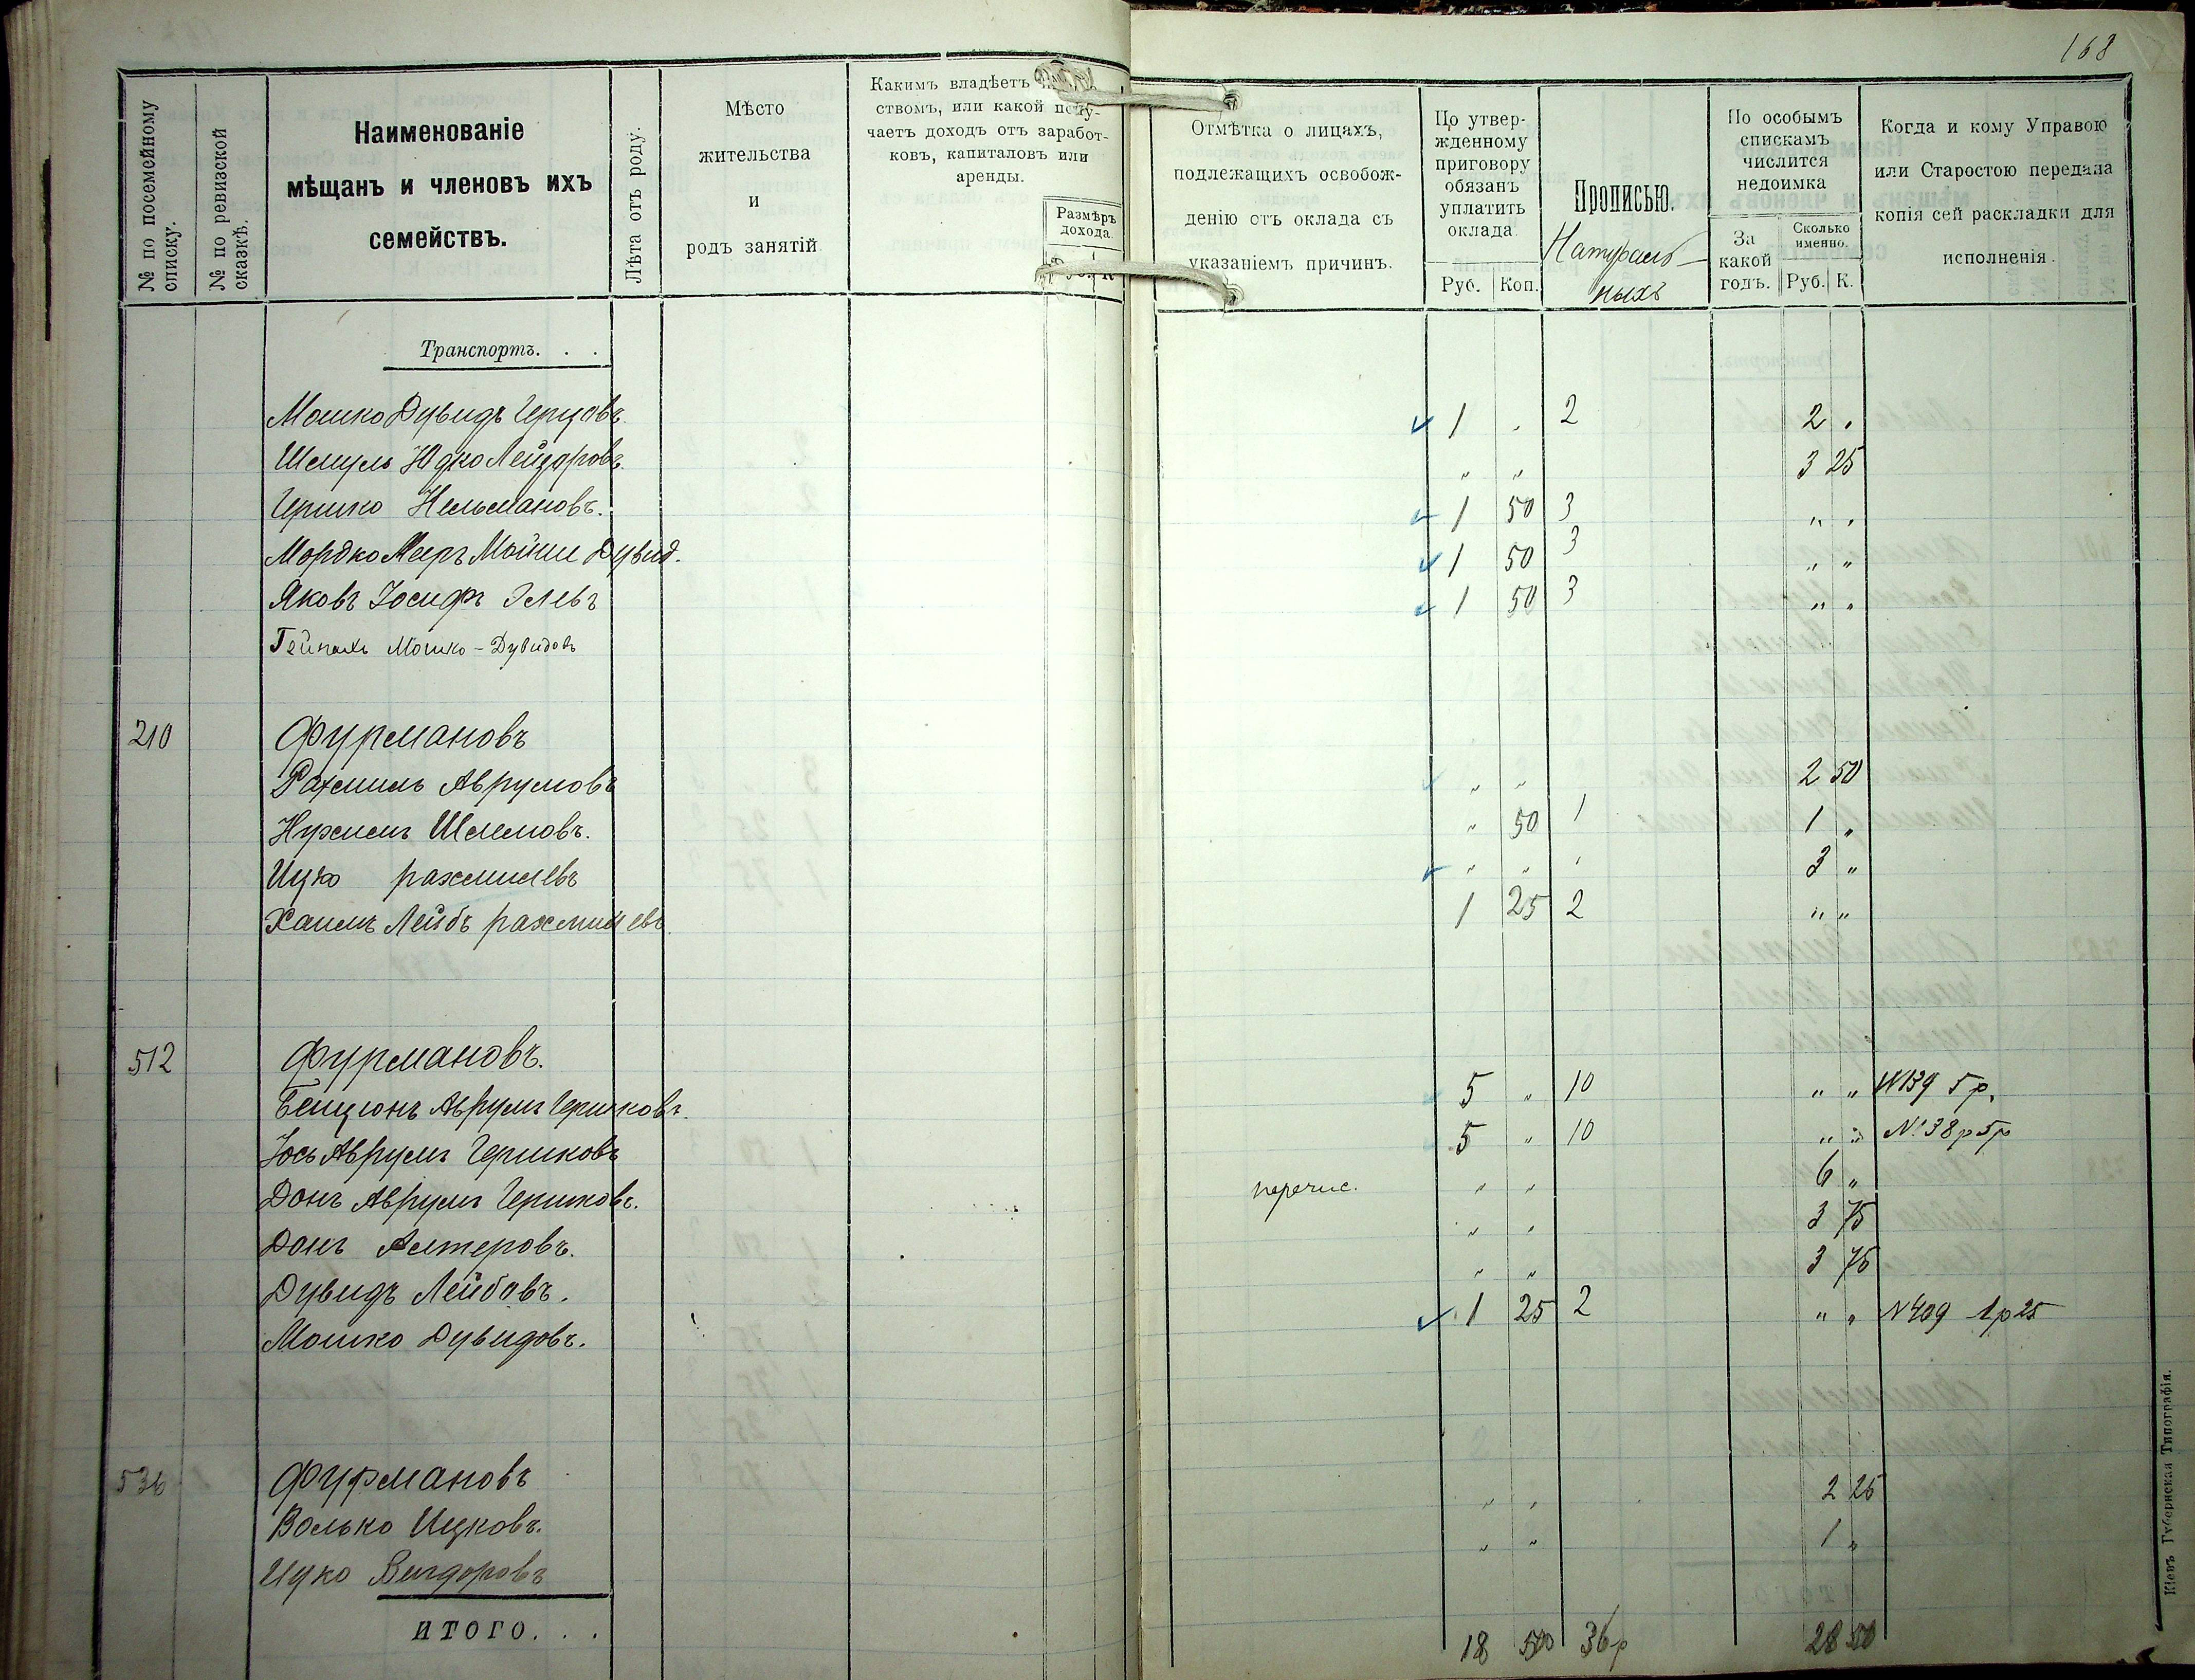 168
№ по посемейному списку.
№ по ревизской сказкѣ.
Наименованіе
мѣщанъ и членовъ ихъ
семействъ.
Лѣта отъ роду.
Мѣсто
жительства
и
родъ занятій
Какимъ владѣетъ
ствомъ, или какой полу-
чаетъ доходъ отъ заработ-
ковъ, капиталовъ или
аренды.
Размѣръ
дохода.
Отмѣтка о лицахъ,
подлежащихъ освобож-
денію отъ оклада съ
указаніемъ причинъ.
По утвер-
жденному
приговору
обязанъ
уплатить
оклада
Руб. Коп.
Прописью.
Натураль-
ныхъ
По особымъ
спискамъ
числится
недоимка
За
какой
годъ.
Сколько
именно.
Руб. К.
Когда и кому Управою
или Старостою передана
копія сей раскладки для
исполненія.
Транспортъ. . .
Мошко Дувидъ Герцовъ 1 „ 2 2 „
Шмуль Юдко Лейзоровъ „ „ 3 25
Гершко Нельмановъ. 1 50 3 „ „
Мордко Меръ Мойше Дувид. 1 50 3 „ „
Яковъ Іосифъ Элевъ 1 50 3 „ „
Мошко-Дувидовъ
210 Фурмановъ
Рахмиль Аврумовъ „ „ 2 50
Нухимъ Шлемовъ. „ 50 1 1 „
Ицко рахмилевъ „ „ 3 „
Хаимъ Лейбъ рахмилевъ 1 25 2 „ „
512 Фурмановъ.
Бенционъ Аврумъ Гершковъ. 5 „ 10 „ „ №139 5 р.
Іось Аврумъ Гершковъ 5 „ 10 „ „ №38 р 5р
Донъ Аврумъ Гершковъ. перечис. „ „ 6 „
Донъ Алтеровъ. „ „ 3 75
Дувидъ Лейбовъ. „ „ 3 75
Мошко Дувидовъ. 1 25 2 „ „ №409 1р 25
536 Фурмановъ
Волько Ицковъ. „ „ 2 25
Ицко Вигдоровъ „ „ 1 „
ИТОГО. . . 18 50 36р 28 50
Кіевъ Губернская Типографія.